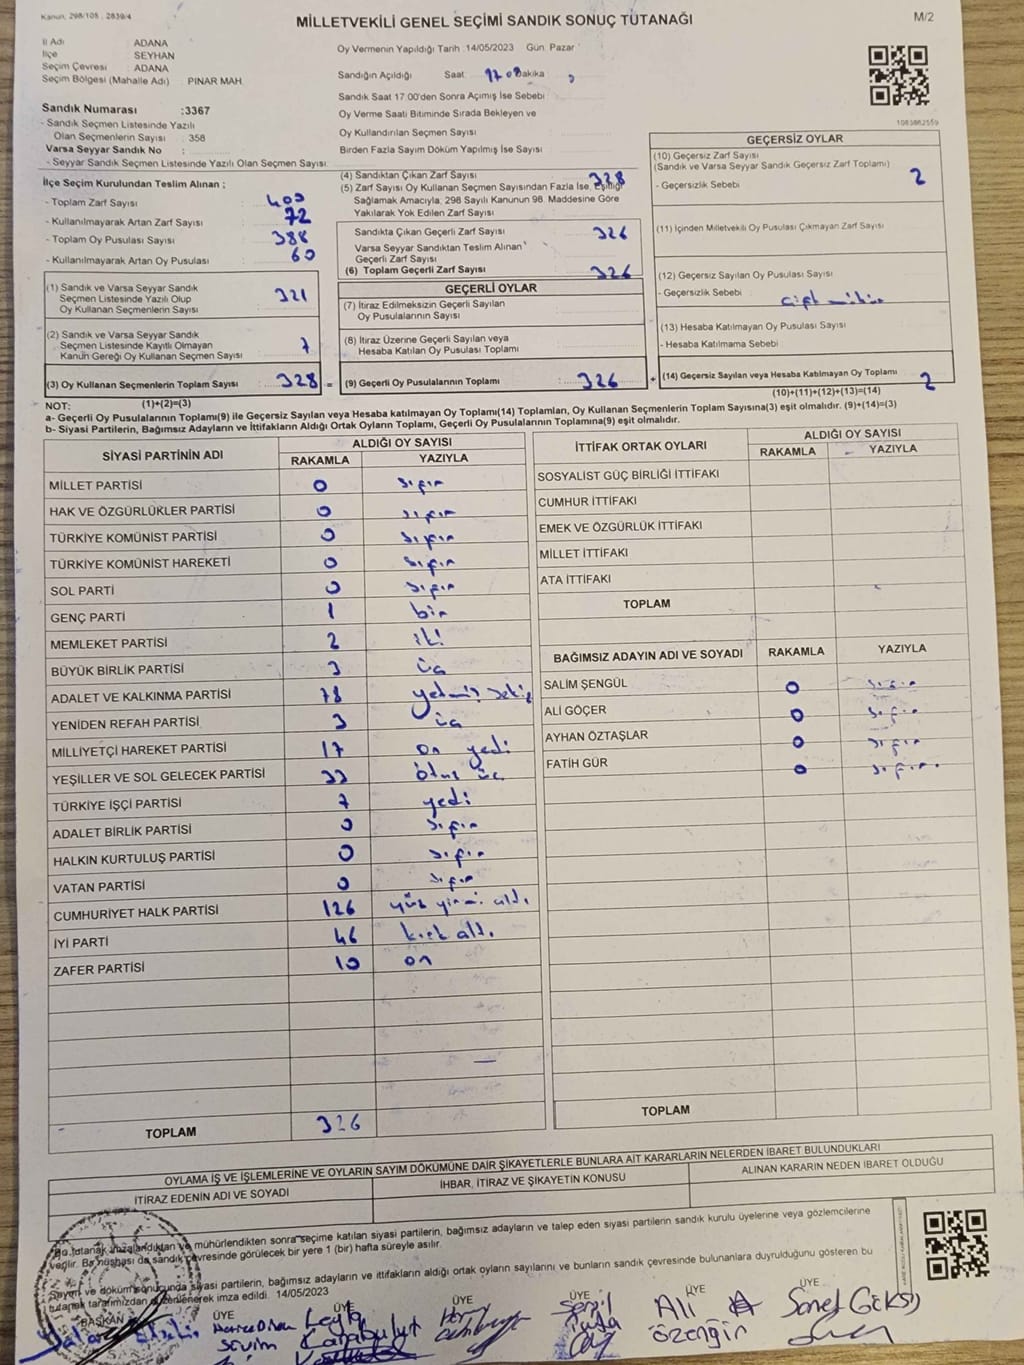 Kanun, 298/105 : 2839/4
MİLLETVEKİLİ GENEL SEÇİMİ SANDIK SONUÇ TUTANAĞI
M/2
İl Adı ADANA
İlçe SEYHAN
Seçim Çevresi : ADANA
Seçim Bölgesi (Mahalle Adı) PINAR MAH.
Sandık Numarası :3367
- Sandık Seçmen Listesinde Yazılı
Olan Seçmenlerin Sayısı : 358
Varsa Seyyar Sandık No :
- Seyyar Sandık Seçmen Listesinde Yazılı Olan Seçmen Sayısı:
Oy Vermenin Yapıldığı Tarih :14/05/2023 Gün: Pazar
Sandığın Açıldığı Saat: 17 Dakika
Sandık Saat 17.00'den Sonra Açımış İse Sebebi :
Oy Verme Saati Bitiminde Sırada Bekleyen ve
Oy Kullandırılan Seçmen Sayısı
Birden Fazla Sayım Döküm Yapılmış İse Sayısı
1083862559
İlçe Seçim Kurulundan Teslim Alınan ;
- Toplam Zarf Sayısı : 403
- Kullanılmayarak Artan Zarf Sayısı : 72
- Toplam Oy Pusulası Sayısı : 388
- Kullanılmayarak Artan Oy Pusulası : 60
(1) Sandık ve Varsa Seyyar Sandık
Seçmen Listesinde Yazılı Olup
Oy Kullanan Seçmenlerin Sayısı : 321
(2) Sandık ve Varsa Seyyar Sandık
Seçmen Listesinde Kayıtlı Olmayan
Kanun Gereği Oy Kullanan Seçmen Sayısı : 7
(3) Oy Kullanan Seçmenlerin Toplam Sayısı : 328 =
(1)+(2)=(3)
(4) Sandıktan Çıkan Zarf Sayısı : 328
(5) Zarf Sayısı Oy Kullanan Seçmen Sayısından Fazla İse, Eşitliği
Sağlamak Amacıyla, 298 Sayılı Kanunun 98. Maddesine Göre
Yakılarak Yok Edilen Zarf Sayısı
Sandıkta Çıkan Geçerli Zarf Sayısı : 326
Varsa Seyyar Sandıktan Teslim Alınan
Geçerli Zarf Sayısı
(6) Toplam Geçerli Zarf Sayısı : 326
GEÇERLİ OYLAR
(7) İtiraz Edilmeksizin Geçerli Sayılan
Oy Pusulalarının Sayısı
(8) İtiraz Üzerine Geçerli Sayılan veya
Hesaba Katılan Oy Pusulası Toplamı
(9) Geçerli Oy Pusulalarının Toplamı : 326 +
GEÇERSİZ OYLAR
(10) Geçersiz Zarf Sayısı
(Sandık ve Varsa Seyyar Sandık Geçersiz Zarf Toplamı) : 2
- Geçersizlik Sebebi :
(11) İçinden Milletvekili Oy Pusulası Çıkmayan Zarf Sayısı
(12) Geçersiz Sayılan Oy Pusulası Sayısı
- Geçersizlik Sebebi :
(13) Hesaba Katılmayan Oy Pusulası Sayısı
- Hesaba Katılmama Sebebi
(14) Geçersiz Sayılan veya Hesaba Katılmayan Oy Toplamı 2
(10)+(11)+(12)+(13)=(14)
NOT:
a- Geçerli Oy Pusulalarının Toplam(9) ile Geçersiz Sayılan veya Hesaba katılmayan Oy Toplamı(14) Toplamları, Oy Kullanan Seçmenlerin Toplam Sayısına(3) eşit olmalıdır. (9)+(14)=(3)
b- Siyasi Partilerin, Bağımsız Adayların ve İttifakların Aldığı Ortak Oyların Toplamı, Geçerli Oy Pusulalarının Toplamına(9) eşit olmalıdır.
SİYASİ PARTİNİN ADI ALDIĞI OY SAYISI
RAKAMLA YAZIYLA
MİLLET PARTİSİ 0 sıfır
HAK VE ÖZGÜRLÜKLER PARTİSİ 0 sıfır
TÜRKİYE KOMÜNİST PARTİSİ 0 sıfır
TÜRKİYE KOMÜNİST HAREKETİ 0 sıfır
SOL PARTİ 0 sıfır
GENÇ PARTİ 1 bir
MEMLEKET PARTİSİ 2 iki
BÜYÜK BİRLİK PARTİSİ 3 üç
ADALET VE KALKINMA PARTİSİ 78 yetmiş sekiz
YENİDEN REFAH PARTİSİ 3 üç
MİLLİYETÇİ HAREKET PARTİSİ 17 on yedi
YEŞİLLER VE SOL GELECEK PARTİSİ 33 otuz üç
TÜRKİYE İŞÇİ PARTİSİ 7 yedi
ADALET BİRLİK PARTİSİ 0 sıfır
HALKIN KURTULUŞ PARTİSİ 0 sıfır
VATAN PARTİSİ 0 sıfır
CUMHURİYET HALK PARTİSİ 126 yüz yirmi altı
İYİ PARTİ 46 kırk altı
ZAFER PARTİSİ 10 on
TOPLAM 326
İTTİFAK ORTAK OYLARI ALDIĞI OY SAYISI
RAKAMLA YAZIYLA
SOSYALİST GÜÇ BİRLİĞİ İTTİFAKI
CUMHUR İTTİFAKI
EMEK VE ÖZGÜRLÜK İTTİFAKI
MİLLET İTTİFAKI
ATA İTTİFAKI
TOPLAM
BAĞIMSIZ ADAYIN ADI VE SOYADI RAKAMLA YAZIYLA
SALİM ŞENGÜL 0 sıfır
ALİ GÖÇER 0 sıfır
AYHAN ÖZTAŞLAR 0 sıfır
FATİH GÜR 0 sıfır
TOPLAM
OYLAMA İŞ VE İŞLEMLERİNE VE OYLARIN SAYIM DÖKÜMÜNE DAİR ŞİKAYETLERLE BUNLARA AİT KARARLARIN NELERDEN İBARET BULUNDUKLARI
İTİRAZ EDENİN ADI VE SOYADI İHBAR, İTİRAZ VE ŞİKAYETİN KONUSU ALINAN KARARIN NEDEN İBARET OLDUĞU
Bu tutanak imzalandıktan ve mühürlendikten sonra seçime katılan siyasi partilerin, bağımsız adayların ve talep eden siyasi partilerin sandık kurulu üyelerine veya gözlemcilerine
verilir. Bir nüshası da sandık çevresinde görülecek bir yere 1 (bir) hafta süreyle asılır.
Sayım ve döküm sonucunda siyasi partilerin, bağımsız adayların ve ittifakların aldığı ortak oyların sayılarını ve bunların sandık çevresinde bulunanlara duyrulduğunu gösteren bu
tutanak tarafımızdan düzenlenerek imza edildi. 14/05/2023
BAŞKAN ÜYE ÜYE ÜYE ÜYE ÜYE ÜYE
Sevim
Leyla
Karabulut
Ali
Özengin
Soner Göksu